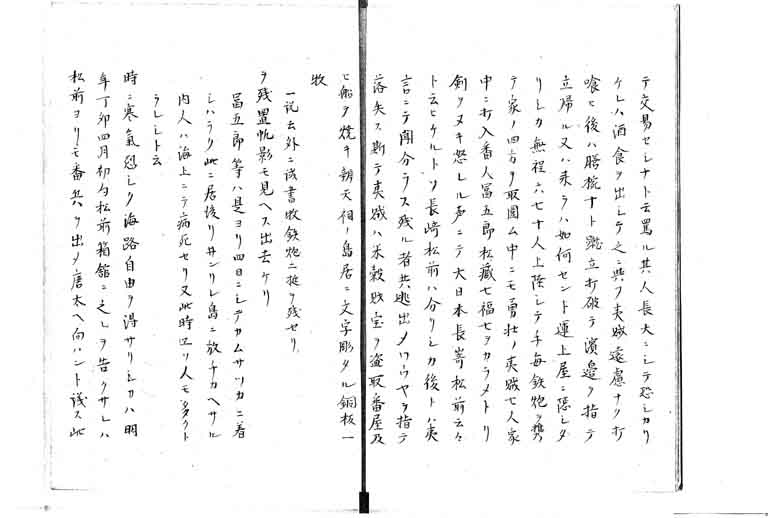 テ交易セシナト云罵ル其人長大ニシテ恐シカリ
ケレハ酒食ヲ出シテ之ニ与フ夷賊遠慮ナク打
喰ヒ後ハ膳椀ナト蹴立打破テ濱邉ヲ指テ
立帰ル又ハ来ラハ如何セント運上屋ニ隠レタ
リシカ無程六七十人上陸シテ手毎鉄炮ヲ携
テ家ノ四方ヲ取圍ム中ニモ勇壮ノ夷賊七人家
中ニ打入番人冨五郎松藏七福七ヲカラメトリ
剣ヲヌキ怒レル声ニテ大日本長嵜松前云々
ト云ヒケルトソ長崎松前ハ分リシカ後トハ夷
言ニテ聞分ラス残ル者共逃出メロウヤヲ指テ
落失ス斯テ夷賊ハ米穀財宝ヲ盗取番屋及
ヒ船ヲ焼キ辨天祠ノ鳥居ニ文字彫タル銅板一
牧
一説云外ニ諭書牧鉄炮二挺ヲ残セリ
ヲ残置帆影モ見ヘス出去ケリ
冨五郎等ハ是ヨリ四日ニシテカムサツカニ着
シハラク此ニ居後リ井シリレ島ニ放チカヘサル
内人ハ海上ニテ病死セリ又此時ヱソ人モ多ク
ラレシト云
時ニ寒氣烈シク海路自由ヲ得サリシカハ明
年丁卯四月初旬松前箱舘ニ之レヲ告クサレハ
松前ヨリモ番兵ヲ出メ唐太ヘ向ハント議ス此